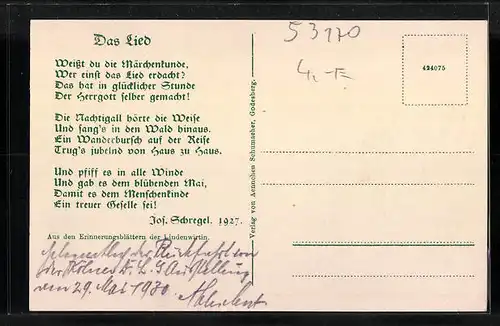 Das Lied
Weißt du die Märchenkunde,
Wer einst das Lied erdacht?
Das hat in glücklicher Stunde
Der Herrgott selber gemacht!
Die Nachtigall hörte die Weise
Und sang's in den Wald hinaus.
Ein Wanderbursch auf der Reise
Trug's jubelnd von Haus zu Haus.
Und pfiff es in alle Winde
Und gab es dem blühenden Mai,
Damit es dem Menschenkinde
Ein treuer Geselle sei!
Jos. Schregel, 1927.
Aus den Erinnerungsblättern der Lindenwirtin.
der Rückfahrt von
der Kölner Ausstellung
am 29. Mai 1930.
Verlag von Aennchen Schumacher, Godesberg.
53170
4,-
424075